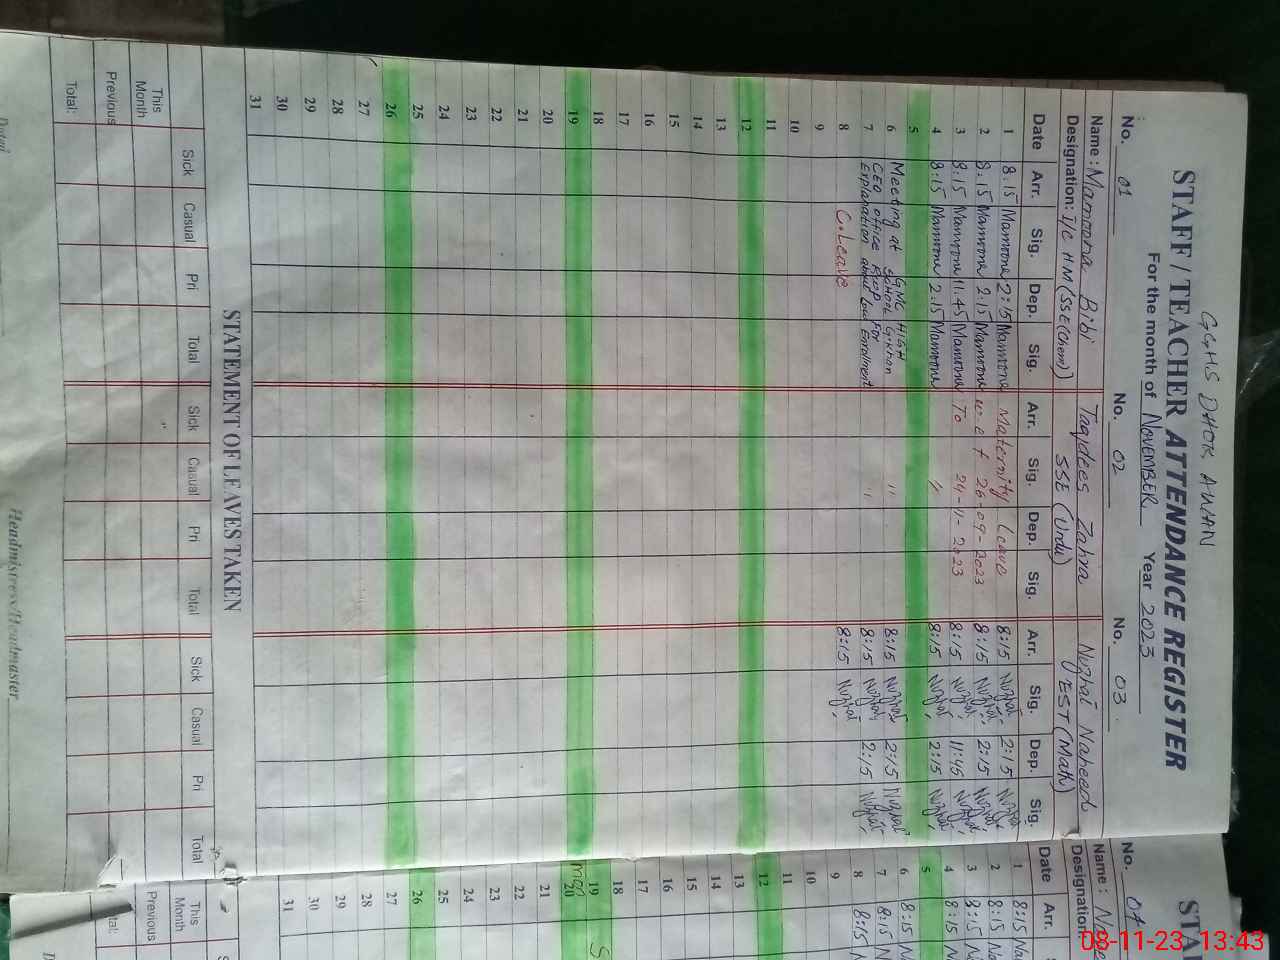 GGHS DHOK AWAN
STAFF / TEACHER ATTENDANCE REGISTER
For the month of NOVEMBER Year 2023
No. 01 No. 02 No. 03
Name : Mamoona Bibi Taqdees Zahra Nuzhat Naheed
Designation: I/C HM (SSE(Chem)) SSE (Urdu) EST (Math)
Date Arr. Sig. Dep. Sig. Arr. Sig. Dep. Sig. Arr. Sig. Dep. Sig.
1 8:15 Mamoona 2:15 Mamoona Maternity Leave 8:15 Nuzhat 2:15 Nuzhat
2 8:15 Mamoona 2:15 Mamoona w e f 26-09-2023 8:15 Nuzhat 2:15 Nuzhat
3 8:15 Mamoona 11:45 Mamoona To 24-11-2023 8:15 Nuzhat 11:45 Nuzhat
4 8:15 Mamoona 2:15 Mamoona " 8:15 Nuzhat 2:15 Nuzhat
5
6 Meeting at GMC HIGH School G.Khan " 8:15 Nuzhat 2:15 Nuzhat
7 CEO office RWP For Explanation about Low Enrolment " 8:15 Nuzhat 2:15 Nuzhat
8 C.Leave 8:15 Nuzhat
9
10
11
12
13
14
15
16
17
18
19
20
21
22
23
24
25
26
27
28
29
30
31
STATEMENT OF LEAVES TAKEN
Sick Casual Pri Total Sick Casual Pri Total Sick Casual Pri Total
This Month
Previous
Total:
Headmistress/Headmaster
No. 04
Name :
Designation
Date Arr.
1 8:15
2 8:15
3 8:15
4 8:15
5
6 8:15
7 8:15
8 8:15
9
10
11
12
13
14
15
16
17
18
19
20
21
22
23
24
25
26
27
28
29
30
31
This Month
Previous
08-11-23 13:43